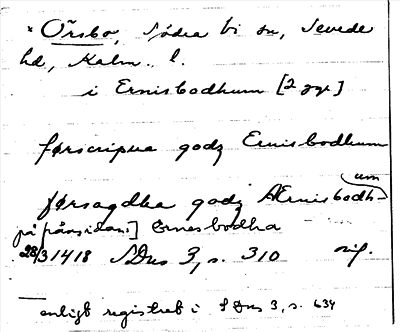 × Örsbo, Södra Vi sn, Sevede
hd, Kalm. l.
i Ernisbodhum [2 ggr]
førscripna godz Ernisbodhum
førsagdha godz Ærnisbodh-
um
på frånsidan] Ernesbodha
28/3 1418 SDns 3, s. 310 sig.
enligt registret i SDns 3, s. 634